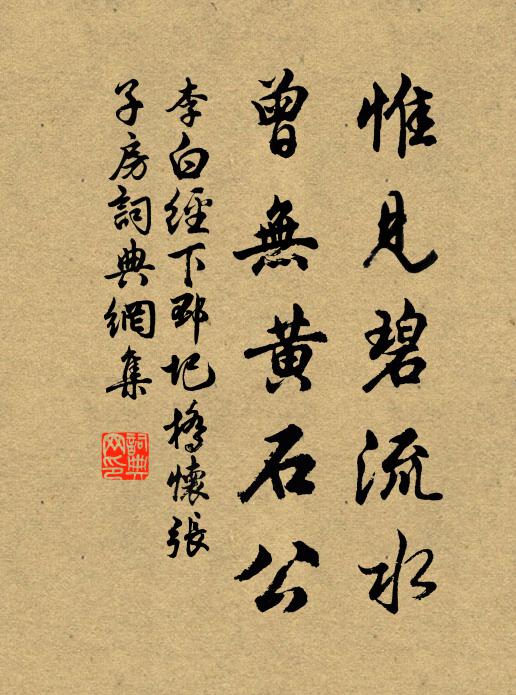 惟見碧流水
曾無黃石公
李白經下邳圯橋懷張
子房詞典網集
詞典
网印